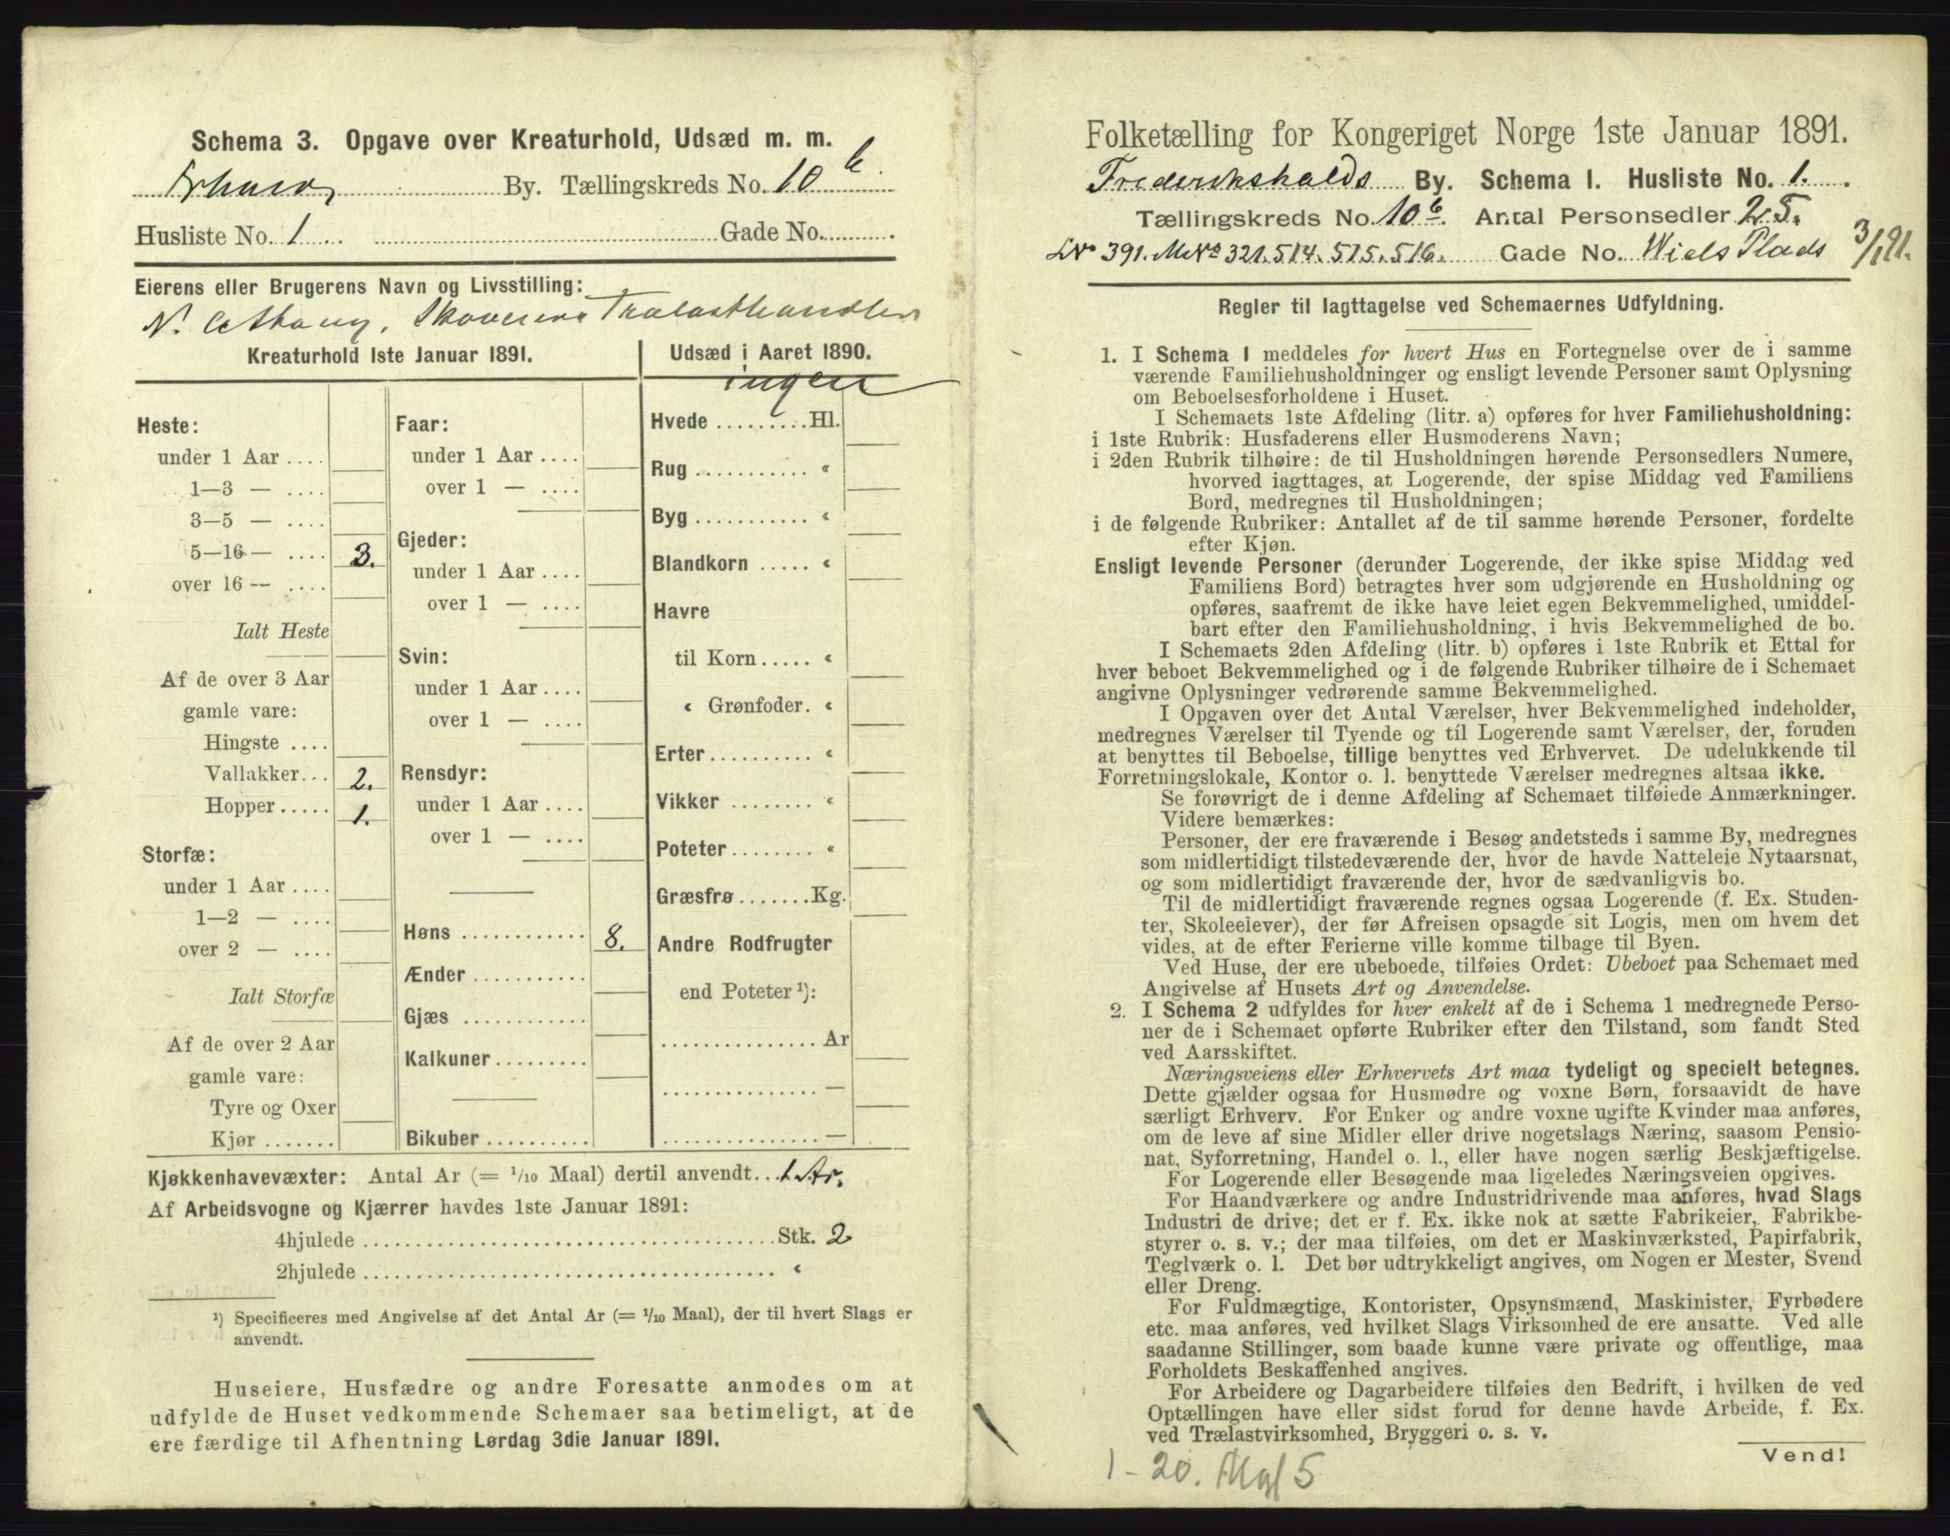 Schema 3. Opgave over Kreaturhold, Udsæd m. m.
By. Tællingskreds No. 10 b
Husliste No. 1 Gade No.
Eierens eller Brugerens Navn og Livsstilling:
N. Trælasthandler
Kreaturhold 1ste Januar 1891.
Heste:
under 1 Aar ....
1—3 — ....
3—5 — ....
5—16 — .... 3.
over 16 — ....
Ialt Heste
Af de over 3 Aar
gamle vare:
Hingste ....
Vallakker... 2.
Hopper..... 1.
Storfæ:
under 1 Aar ....
1—2 — ....
over 2 — ....
Ialt Storfæ
Af de over 2 Aar
gamle vare:
Tyre og Oxer
Kjør .......
Faar:
under 1 Aar ....
over 1 — ....
Gjeder:
under 1 Aar ....
over 1 — ....
Svin:
under 1 Aar ....
over 1 — ....
Rensdyr:
under 1 Aar ....
over 1 — ....
Høns ............ 8.
Ænder ...........
Gjæs ............
Kalkuner.........
Bikuber ..........
Udsæd i Aaret 1890.
ingen
Hvede ......... Hl.
Rug ........... «
Byg ........... «
Blandkorn ..... «
Havre
til Korn..... «
« Grønfoder. «
Erter .......... «
Vikker ........ «
Poteter........ «
Græsfrø ....... Kg.
Andre Rodfrugter
end Poteter ¹):
............... Ar
............... —
............... —
Kjøkkenhavevæxter: Antal Ar (= 1/10 Maal) dertil anvendt.. 1 Ar.
Af Arbeidsvogne og Kjærrer havdes 1ste Januar 1891:
4hjulede ........................................ Stk. 2
2hjulede ........................................ «
¹) Specificeres med Angivelse af det Antal Ar (= 1/10 Maal), der til hvert Slags er
anvendt.
Huseiere, Husfædre og andre Foresatte anmodes om at
udfylde de Huset vedkommende Schemaer saa betimeligt, at de
ere færdige til Afhentning Lørdag 3die Januar 1891.
Folketælling for Kongeriget Norge 1ste Januar 1891.
Frederikshalds By. Schema 1. Husliste No. 1.
Tællingskreds No. 10 b. Antal Personsedler 25.
LNo 391. MNo 321. 514. 515. 516. Gade No. Wiels Plads 3/1 91.
Regler til Iagttagelse ved Schemaernes Udfyldning.
1. I Schema 1 meddeles for hvert Hus en Fortegnelse over de i samme
værende Familiehusholdninger og ensligt levende Personer samt Oplysning
om Beboelsesforholdene i Huset.
I Schemaets 1ste Afdeling (litr. a) opføres for hver Familiehusholdning:
i 1ste Rubrik: Husfaderens eller Husmoderens Navn;
i 2den Rubrik tilhøire: de til Husholdningen hørende Personsedlers Numere,
hvorved iagttages, at Logerende, der spise Middag ved Familiens
Bord, medregnes til Husholdningen;
i de følgende Rubriker: Antallet af de til samme hørende Personer, fordelte
efter Kjøn.
Ensligt levende Personer (derunder Logerende, der ikke spise Middag ved
Familiens Bord) betragtes hver som udgjørende en Husholdning og
opføres, saafremt de ikke have leiet egen Bekvemmelighed, umiddel-
bart efter den Familiehusholdning, i hvis Bekvemmelighed de bo.
I Schemaets 2den Afdeling (litr. b) opføres i 1ste Rubrik et Ettal for
hver beboet Bekvemmelighed og i de følgende Rubriker tilhøire de i Schemaet
angivne Oplysninger vedrørende samme Bekvemmelighed.
I Opgaven over det Antal Værelser, hver Bekvemmelighed indeholder,
medregnes Værelser til Tyende og til Logerende samt Værelser, der, foruden
at benyttes til Beboelse, tillige benyttes ved Erhvervet. De udelukkende til
Forretningslokale, Kontor o. l. benyttede Værelser medregnes altsaa ikke.
Se forøvrigt de i denne Afdeling af Schemaet tilføiede Anmærkninger.
Videre bemærkes:
Personer, der ere fraværende i Besøg andetsteds i samme By, medregnes
som midlertidigt tilstedeværende der, hvor de havde Natteleie Nytaarsnat,
og som midlertidigt fraværende der, hvor de sædvanligvis bo.
Til de midlertidigt fraværende regnes ogsaa Logerende (f. Ex. Studen-
ter, Skoleelever), der før Afreisen opsagde sit Logis, men om hvem det
vides, at de efter Ferierne ville komme tilbage til Byen.
Ved Huse, der ere ubeboede, tilføies Ordet: Ubeboet paa Schemaet med
Angivelse af Husets Art og Anvendelse.
2. I Schema 2 udfyldes for hver enkelt af de i Schema 1 medregnede Perso-
ner de i Schemaet opførte Rubriker efter den Tilstand, som fandt Sted
ved Aarsskiftet.
Næringsveiens eller Erhvervets Art maa tydeligt og specielt betegnes.
Dette gjælder ogsaa for Husmødre og voxne Børn, forsaavidt de have
særligt Erhverv. For Enker og andre voxne ugifte Kvinder maa anføres,
om de leve af sine Midler eller drive nogetslags Næring, saasom Pensio-
nat, Syforretning, Handel o. l., eller have nogen særlig Beskjæftigelse.
For Logerende eller Besøgende maa ligeledes Næringsveien opgives.
For Haandværkere og andre Industridrivende maa anføres, hvad Slags
Industri de drive; det er f. Ex. ikke nok at sætte Fabrikeier, Fabrikbe-
styrer o. s. v.; der maa tilføies, om det er Maskinværksted, Papirfabrik,
Teglværk o. l. Det bør udtrykkeligt angives, om Nogen er Mester, Svend
eller Dreng.
For Fuldmægtige, Kontorister, Opsynsmænd, Maskinister, Fyrbødere
etc. maa anføres, ved hvilket Slags Virksomhed de ere ansatte. Ved alle
saadanne Stillinger, som baade kunne være private og offentlige, maa
Forholdets Beskaffenhed angives.
For Arbeidere og Dagarbeidere tilføies den Bedrift, i hvilken de ved
Optællingen have eller sidst forud for denne havde Arbeide, f. Ex.
ved Trælastvirksomhed, Bryggeri o. s. v.
Vend!
1 - 20. 5